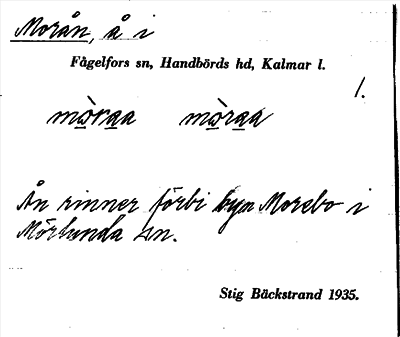 Morån, å i
Fågelfors sn, Handbörds hd, Kalmar l.
1.
mò̱ra̱a mò̱ra̱a
Ån rinner förbi byn Morebo i
Mörlunda sn.
Stig Bäckstrand 1935.